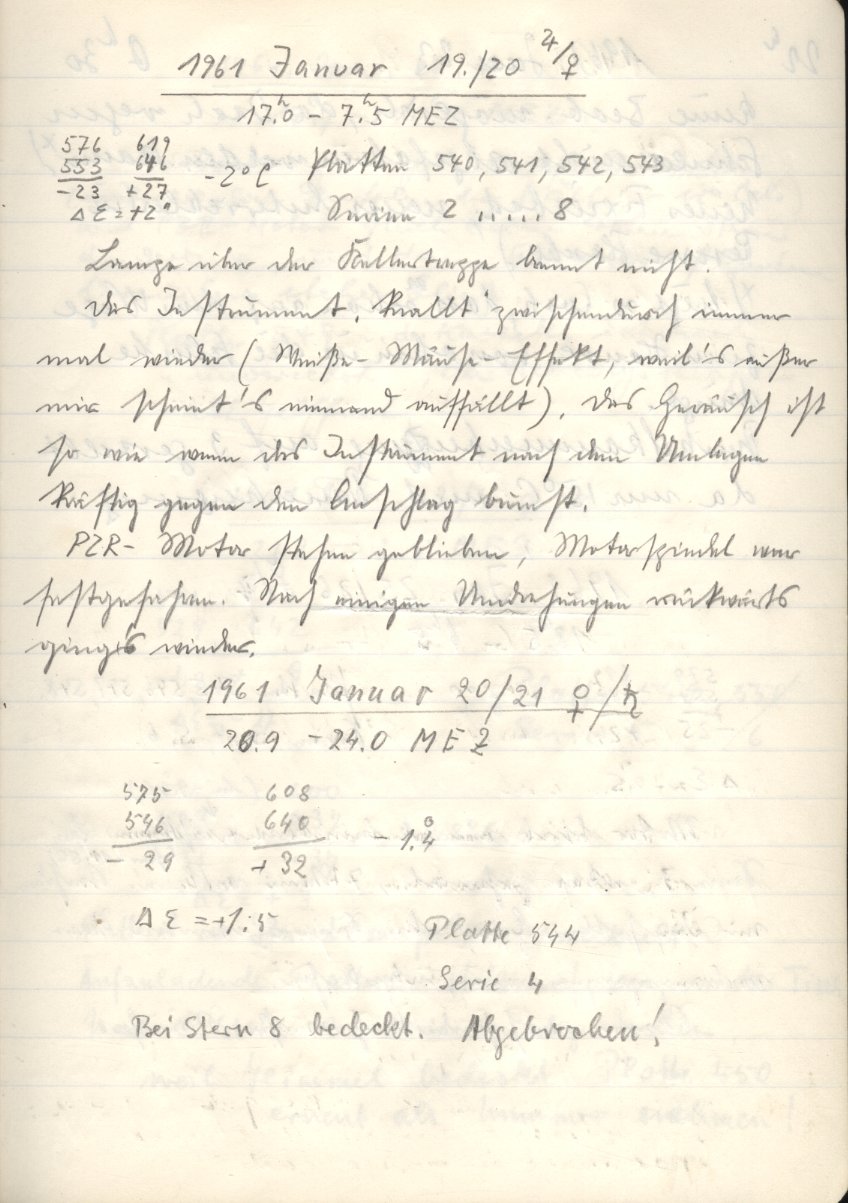 1961 Januar 19./20 ♃/♀
17ʰ.0 – 7ʰ.5 MEZ
576 619
553 646 -2°C Platten 540, 541, 542, 543
-23 +27
Δ Σ = +2" Serien 2 ..... 8
Lampe über der Kellertreppe brennt nicht.
Das Instrument 'knallt' zwischendurch immer
mal wieder (Weiße-Mäuse-Effekt, weil's außer
mir scheint's niemand auffällt). Das Geräusch ist
so wie wenn das Instrument nach dem Umlegen
kräftig gegen den Anschlag bumst.
PZR-Motor stehen geblieben, Motorspindel war
festgefahren. Nach einigen Umdrehungen rückwärts
ging's wieder.
1961 Januar 20/21 ♀/♄
20.9 – 24.0 MEZ
575 608
546 640 - 1.°4
- 29 + 32
Δ Σ = +1.5 Platte 544
Serie 4
Bei Stern 8 bedeckt. Abgebrochen!